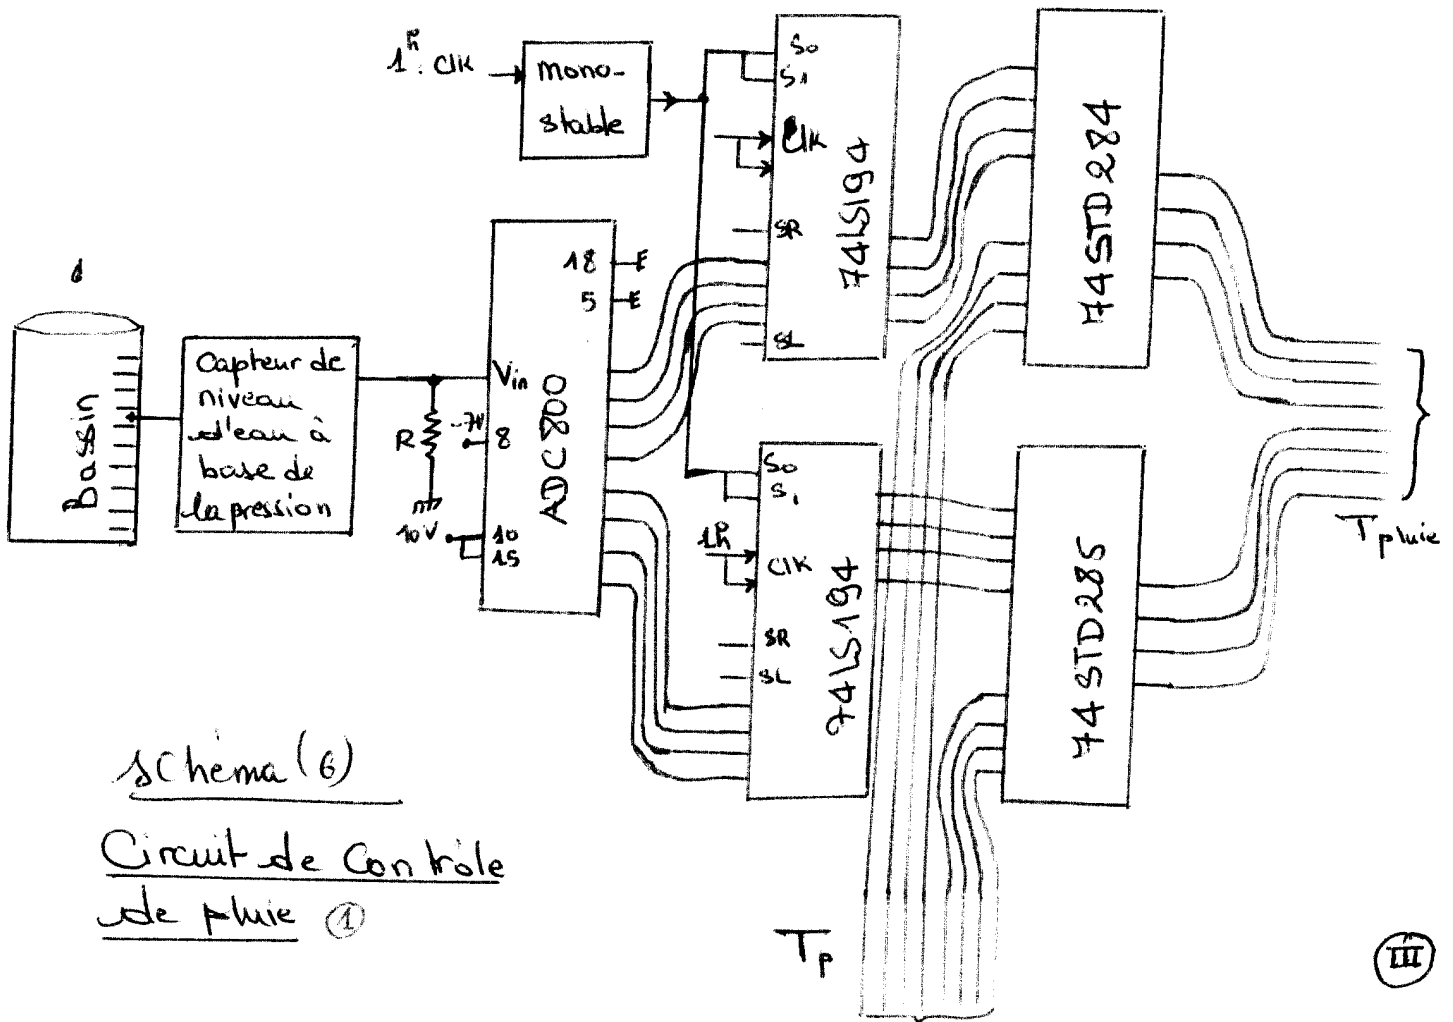 1h. Clk
mono-
stable
S0
S1
Clk
SR
SL
74LS194
74STD284
Bassin
Capteur de
niveau
d'eau à
base de
la pression
R
10V
-7V
Vin
8
10
15
18
5
ADC800
S0
S1
1h
Clk
SR
SL
74LS194
74STD285
Tpluie
Tp
Schéma (6)
Circuit de Contrôle
de pluie ①
III